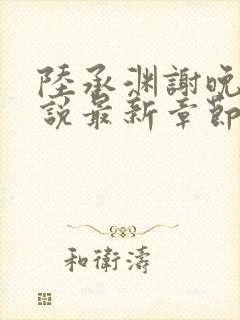 陸承淵謝晚
說最新章節
和衛濤